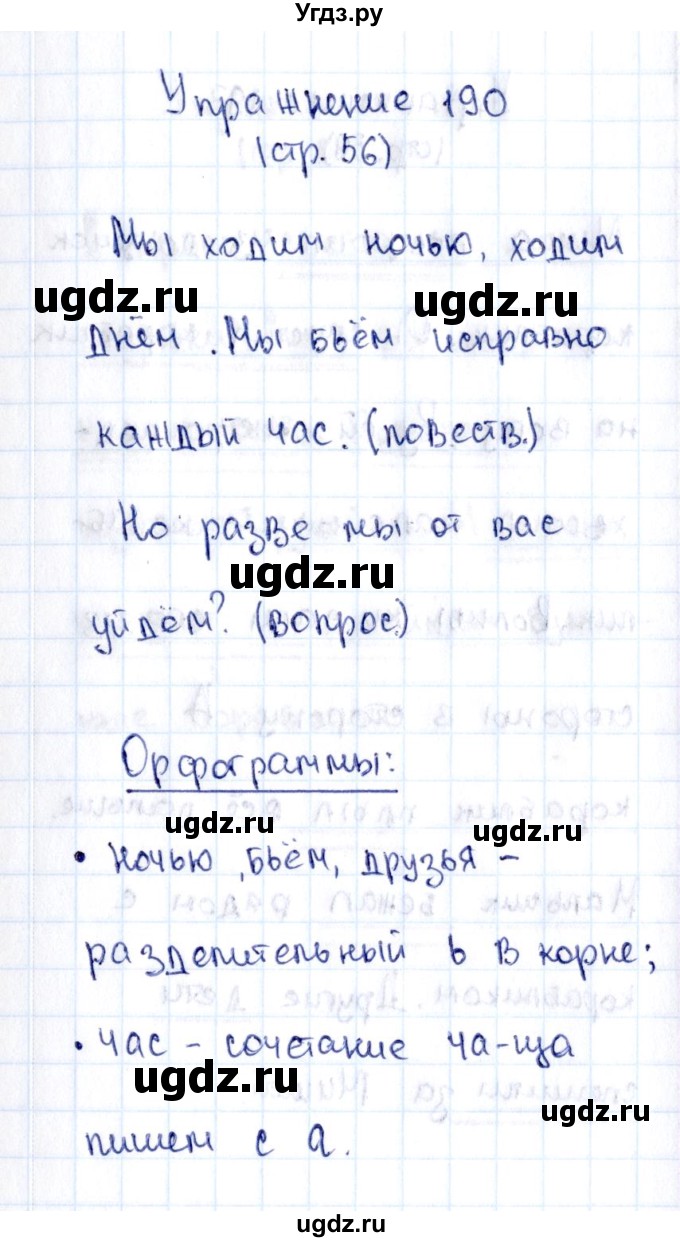 Угдз.ру
Упражнение 190
(стр. 56)
Мы ходим ночью, ходим
ugdz.ru ugdz.ru
днём. Мы бьём исправно
каждый час. (повеств.)
Но разве мы от вас
ugdz.ru
уйдём? (вопрос.)
Орфограммы:
ugdz.ru ugdz.ru
• Ночью, бьём, друзья –
разделительный ь в корне;
• Час – сочетание ча-ща
ugdz.ru ugdz.ru
пишем с а.
ugdz.ru